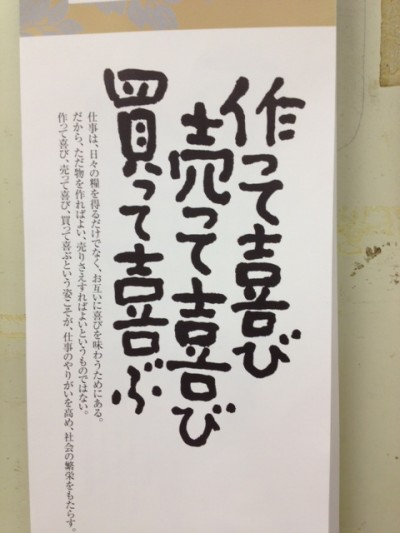 作って喜び
売って喜び
買って喜ぶ
仕事は、日々の糧を得るだけでなく、お互いに喜びを味わうためにある。
だから、ただ物を作ればよい、売りさえすればよいというものではない。
作って喜び、売って喜び、買って喜ぶという姿こそが、仕事のやりがいを高め、社会の繁栄をもたらす。